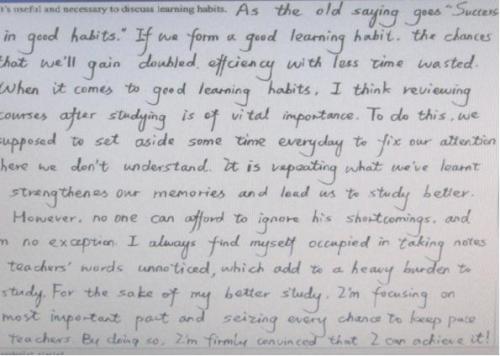 t's useful and necessary to discuss learning habits. As the old saying goes "Success
in good habits." If we form a good learning habit, the chances
that we'll gain doubled efficiency with less time wasted.
When it comes to good learning habits, I think reviewing
courses after studying is of vital importance. To do this, we
supposed to set aside some time everyday to fix our attention
here we don't understand. It is repeating what we've learnt
strengthenes our memories and lead us to study better.
However, no one can afford to ignore his shortcomings, and
m no exception. I always find myself occupied in taking notes
teachers' words unnoticed, which add to a heavy burden to
study. For the sake of my better study, I'm focusing on
most important part and seizing every chance to keep pace
teachers. By doing so, I'm firmly convinced that I can achieve it!